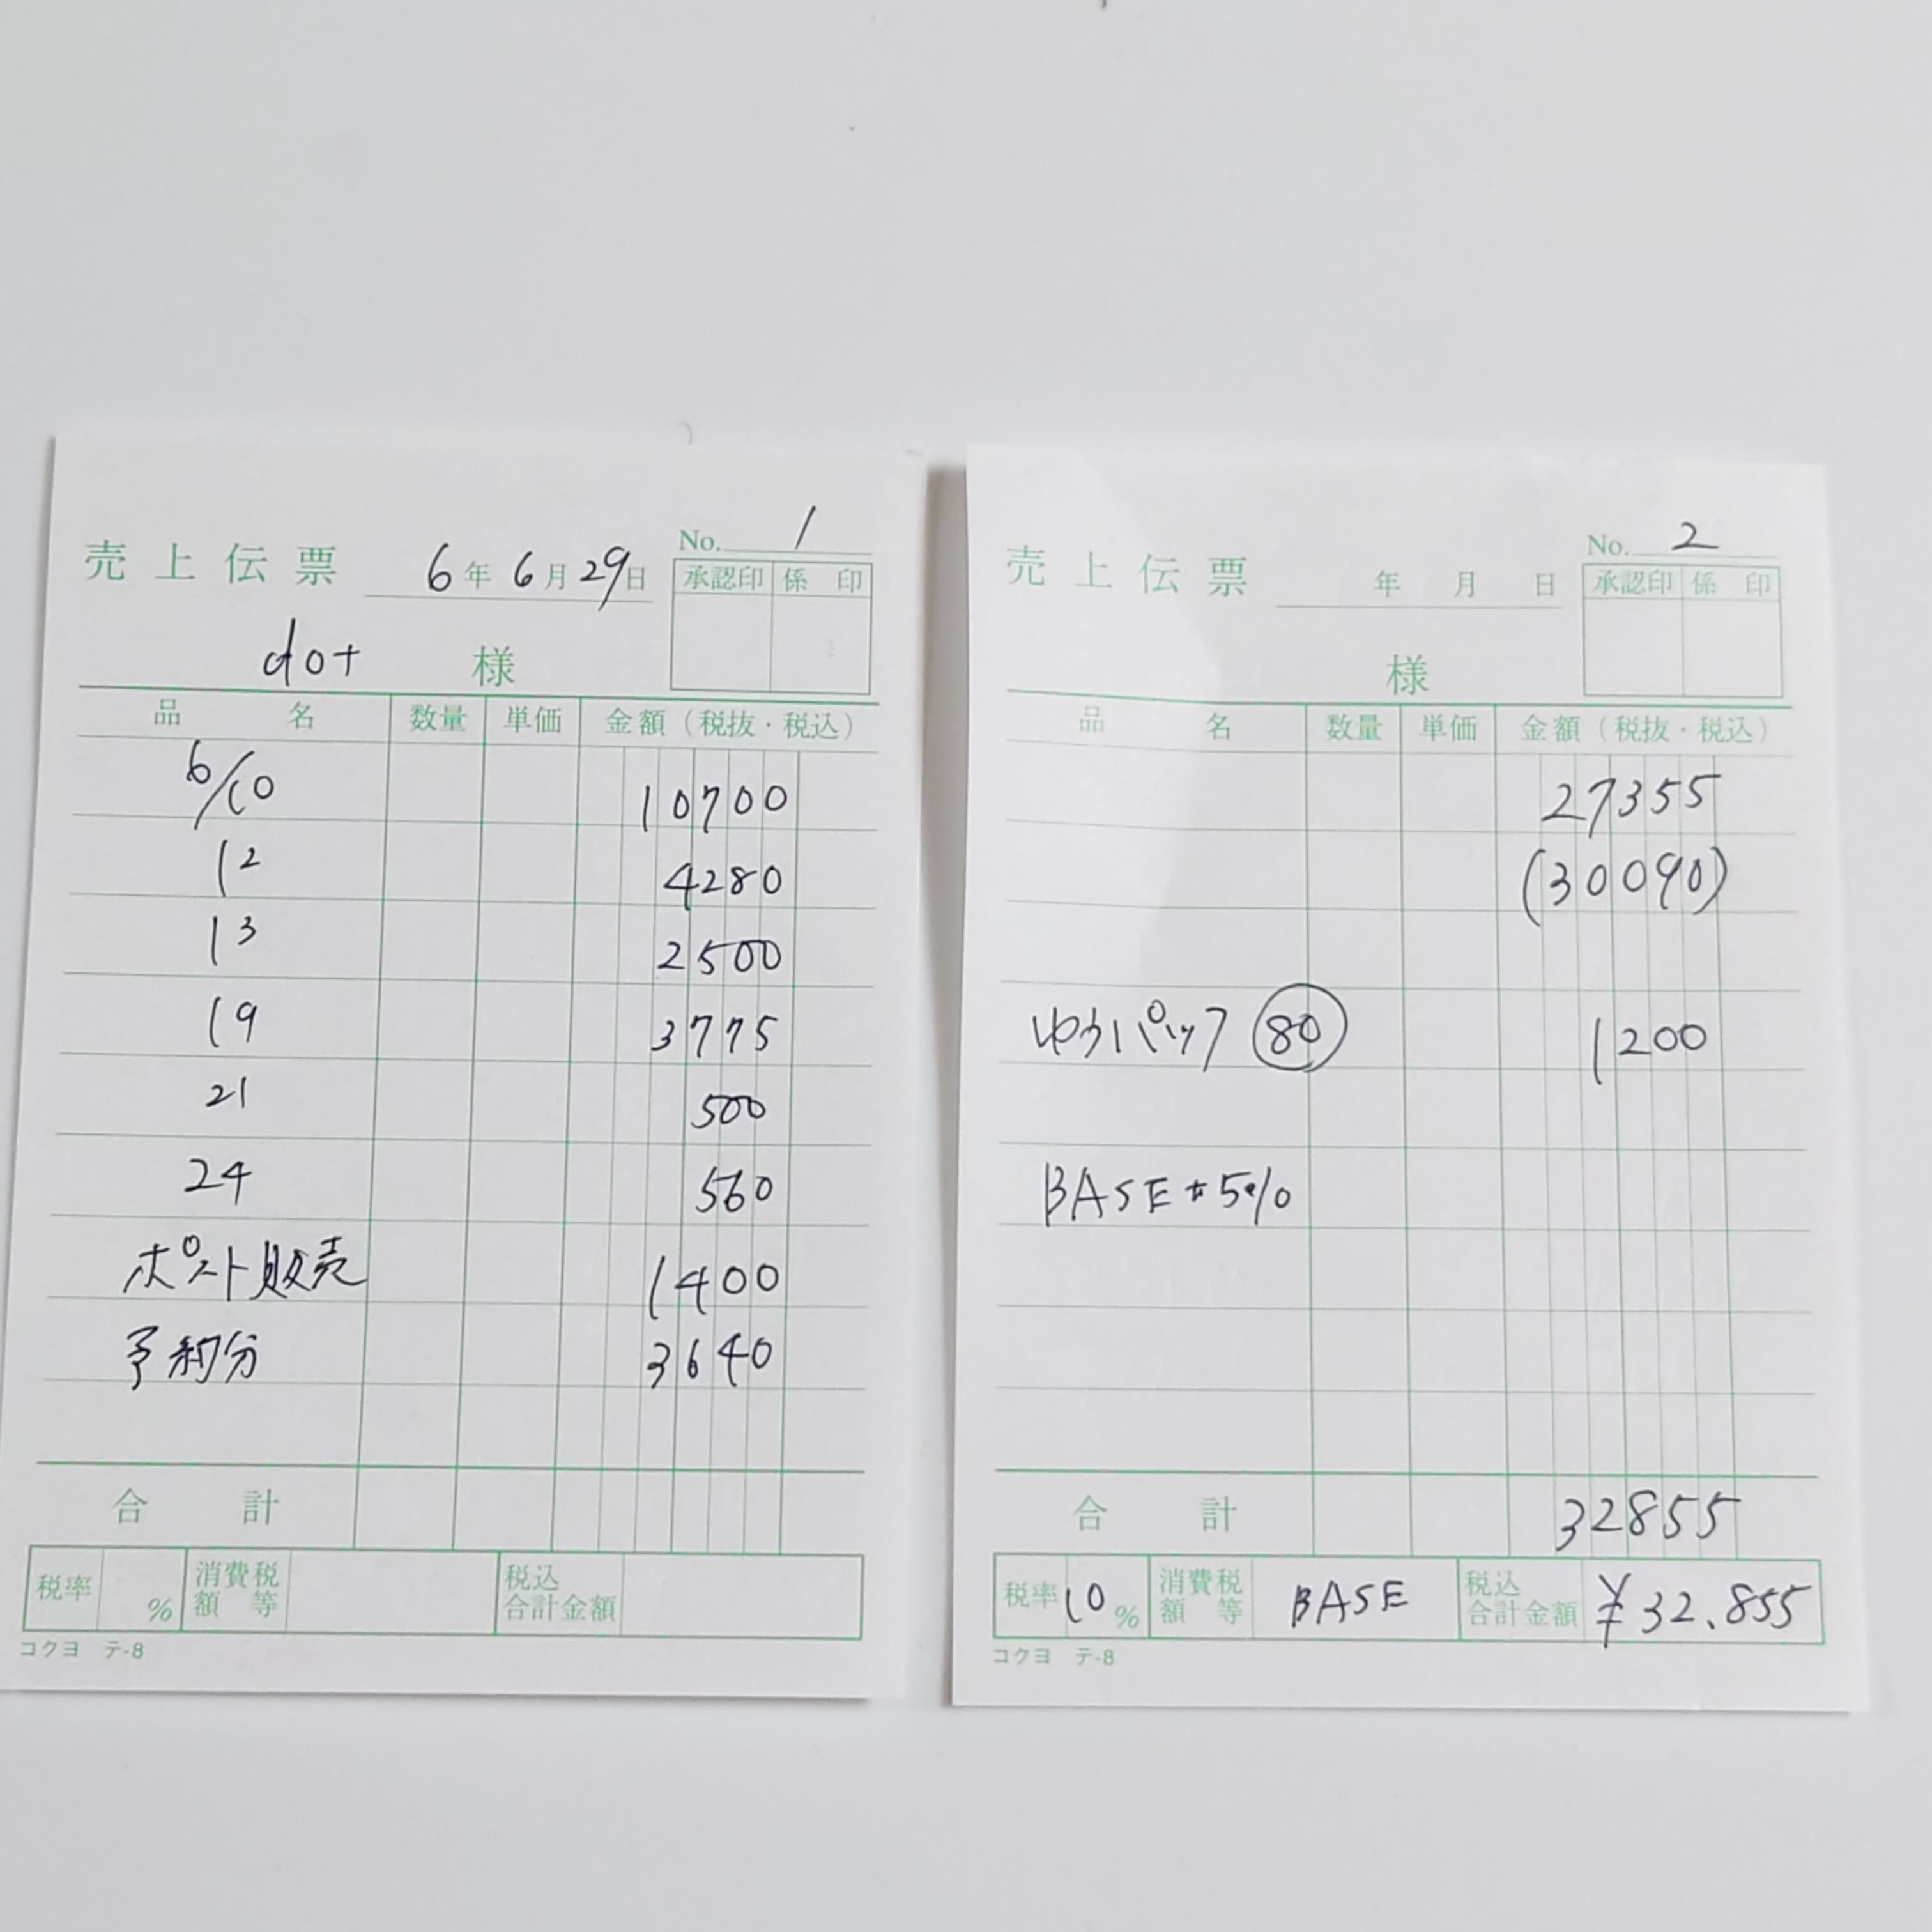 売上伝票 6年 6月 29日 No. 1
承認印 係印
dot 様
品名 数量 単価 金額（税抜・税込）
6/10 10700
12 4280
13 2500
19 3775
21 500
24 560
ポスト販売 1400
予約分 3640
合計
税率 % 消費税額等 税込合計金額
コクヨ テ-8
売上伝票 年 月 日 No. 2
承認印 係印
様
品名 数量 単価 金額（税抜・税込）
27355
(30090)
ゆうパック 80 1200
BASE +5%
合計 32855
税率 10% 消費税額等 BASE 税込合計金額 ¥32.855
コクヨ テ-8